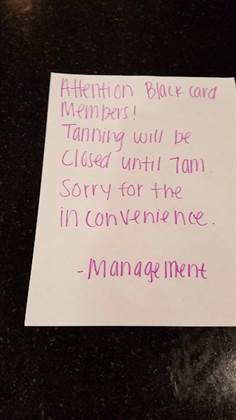 Attention Black card
Members!
Tanning will be
closed until 7am.
Sorry for the
inconvenience.
-Management